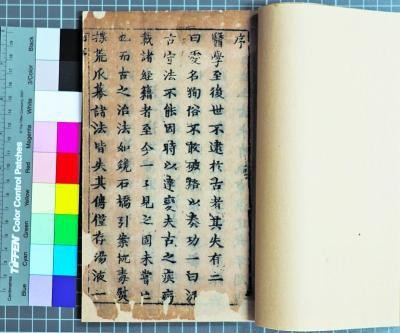 序
醫學至後世不逮於古者其失有二一
曰愛名狗俗不敢破格以奏功一曰泥
古守法不能因時以達變夫古之疾病
載諸經籍者至今一二見之固未嘗
也而古之治法如鏡石橋引案杌毒熨
揲荒爪幕諸法皆失其傳僅存湯液一
TIFFEN Color Control Patches
Blue
Cyan
Green
Yellow
Red
Magenta
White
3/Color
Black